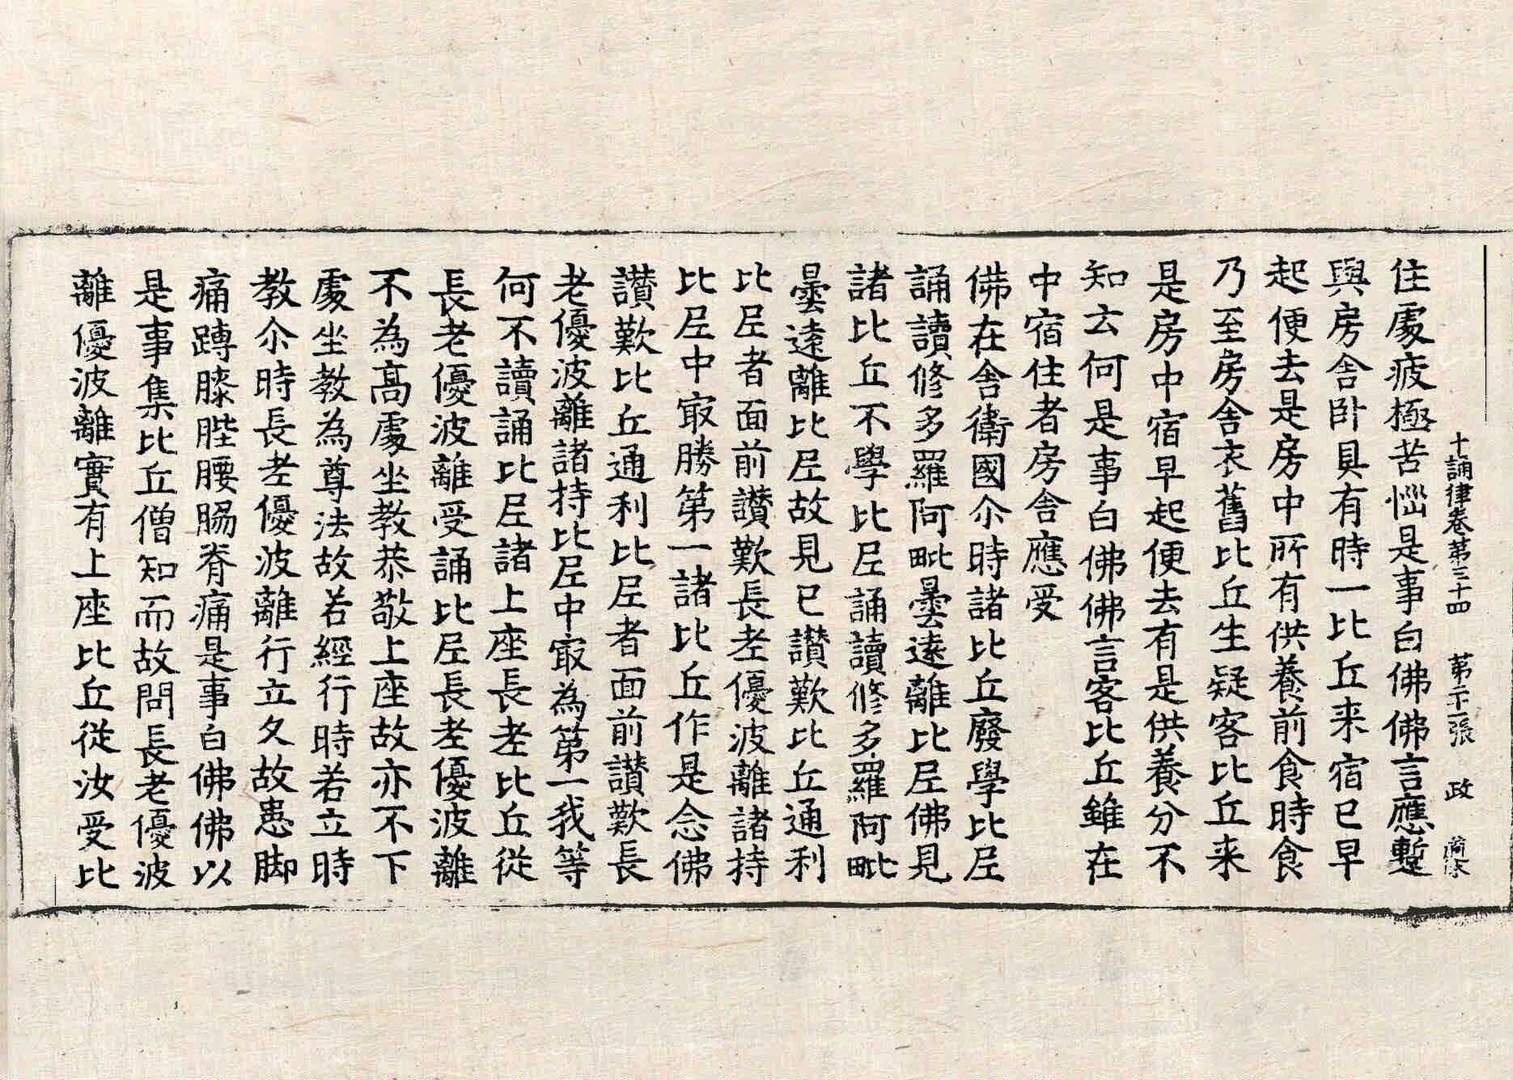 十誦律卷第三十四 第二十張 政
住處疲極苦惱是事白佛佛言應蹔
與房舍卧具有時一比丘来宿已早
起便去是房中所有供養前食時食
乃至房舍衣舊比丘生疑客比丘来
是房中宿早起便去有是供養分不
知云何是事白佛佛言客比丘雖在
中宿住者房舍應受
佛在舍衛國尒時諸比丘廢學比𡰱
誦讀修多羅阿毗曇遠離比𡰱佛見
諸比丘不學比𡰱誦讀修多羅阿毗
曇遠離比𡰱故見已讃歎比丘通利
比𡰱者面前讃歎長老優波離諸持
比𡰱中㝡勝第一諸比丘作是念佛
讃歎比丘通利比𡰱者面前讃歎長
老優波離諸持比𡰱中㝡為第一我等
何不讀誦比𡰱諸上座長老比丘從
長老優波離受誦比𡰱長老優波離
不為高處坐教恭敬上座故亦不下
處坐教為尊法故若經行時若立時
教尒時長老優波離行立久故患脚
痛蹲膝䏶腰腸脊痛是事白佛佛以
是事集比丘僧知而故問長老優波
離優波離實有上座比丘從汝受比